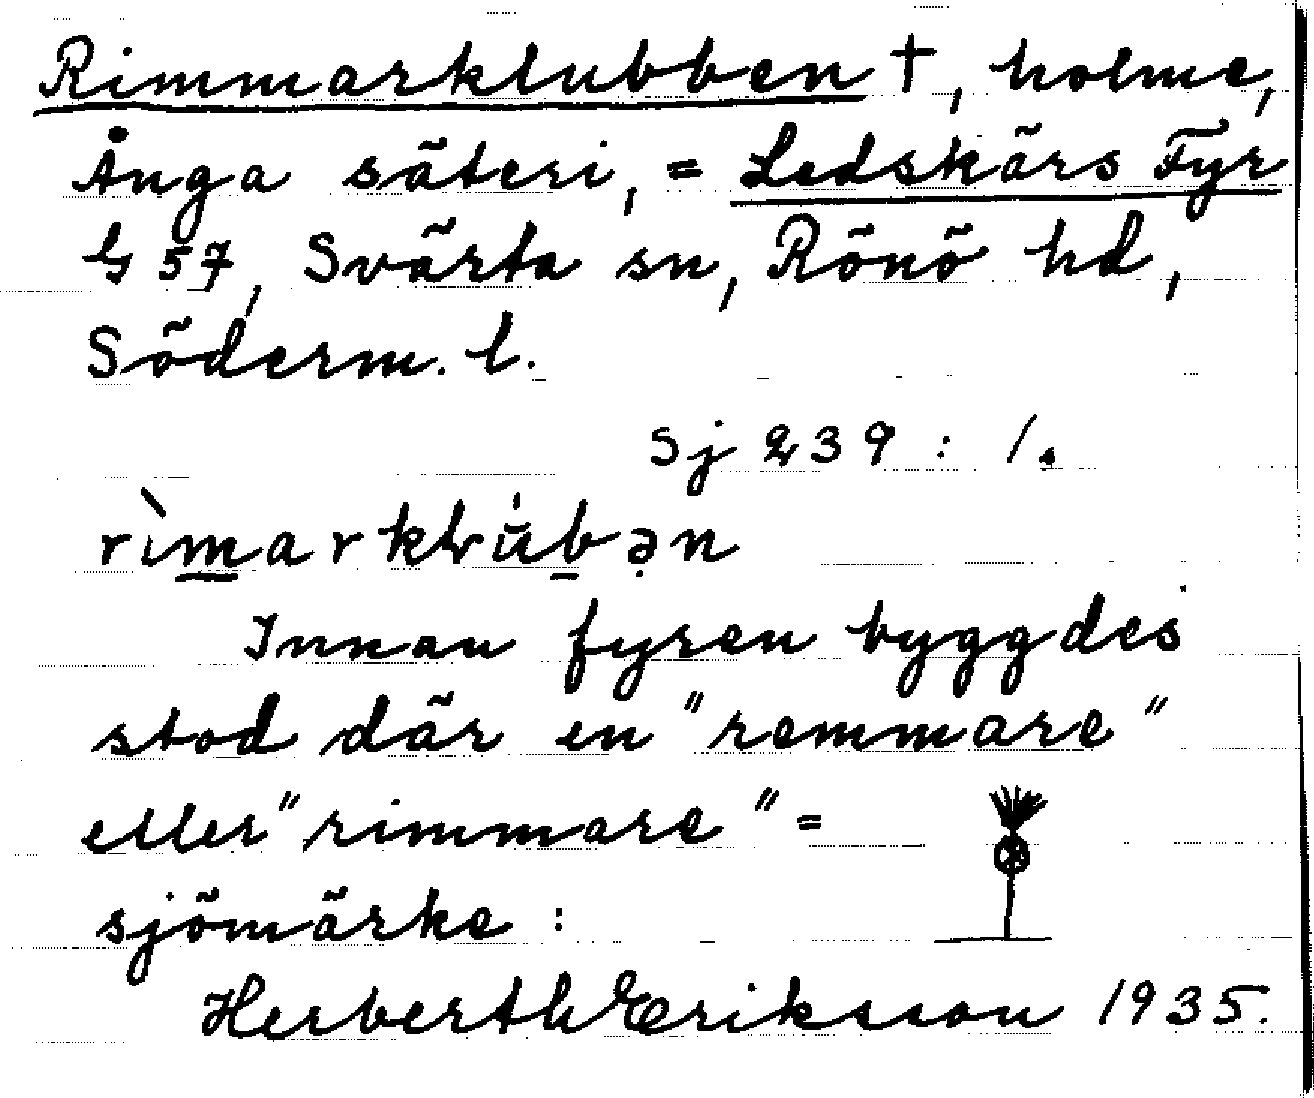 Rimmarklubben †, holme,
Ånga säteri, = Ledskärs Fyr
G 57, Svärta sn, Rönö hd,
Söderm. l.
Sj 239 : 1.
rìmarklu̇bən
Innan fyren byggdes
stod där en "remmare"
eller "rimmare" =
sjömärke :
Herberth Eriksson 1935.